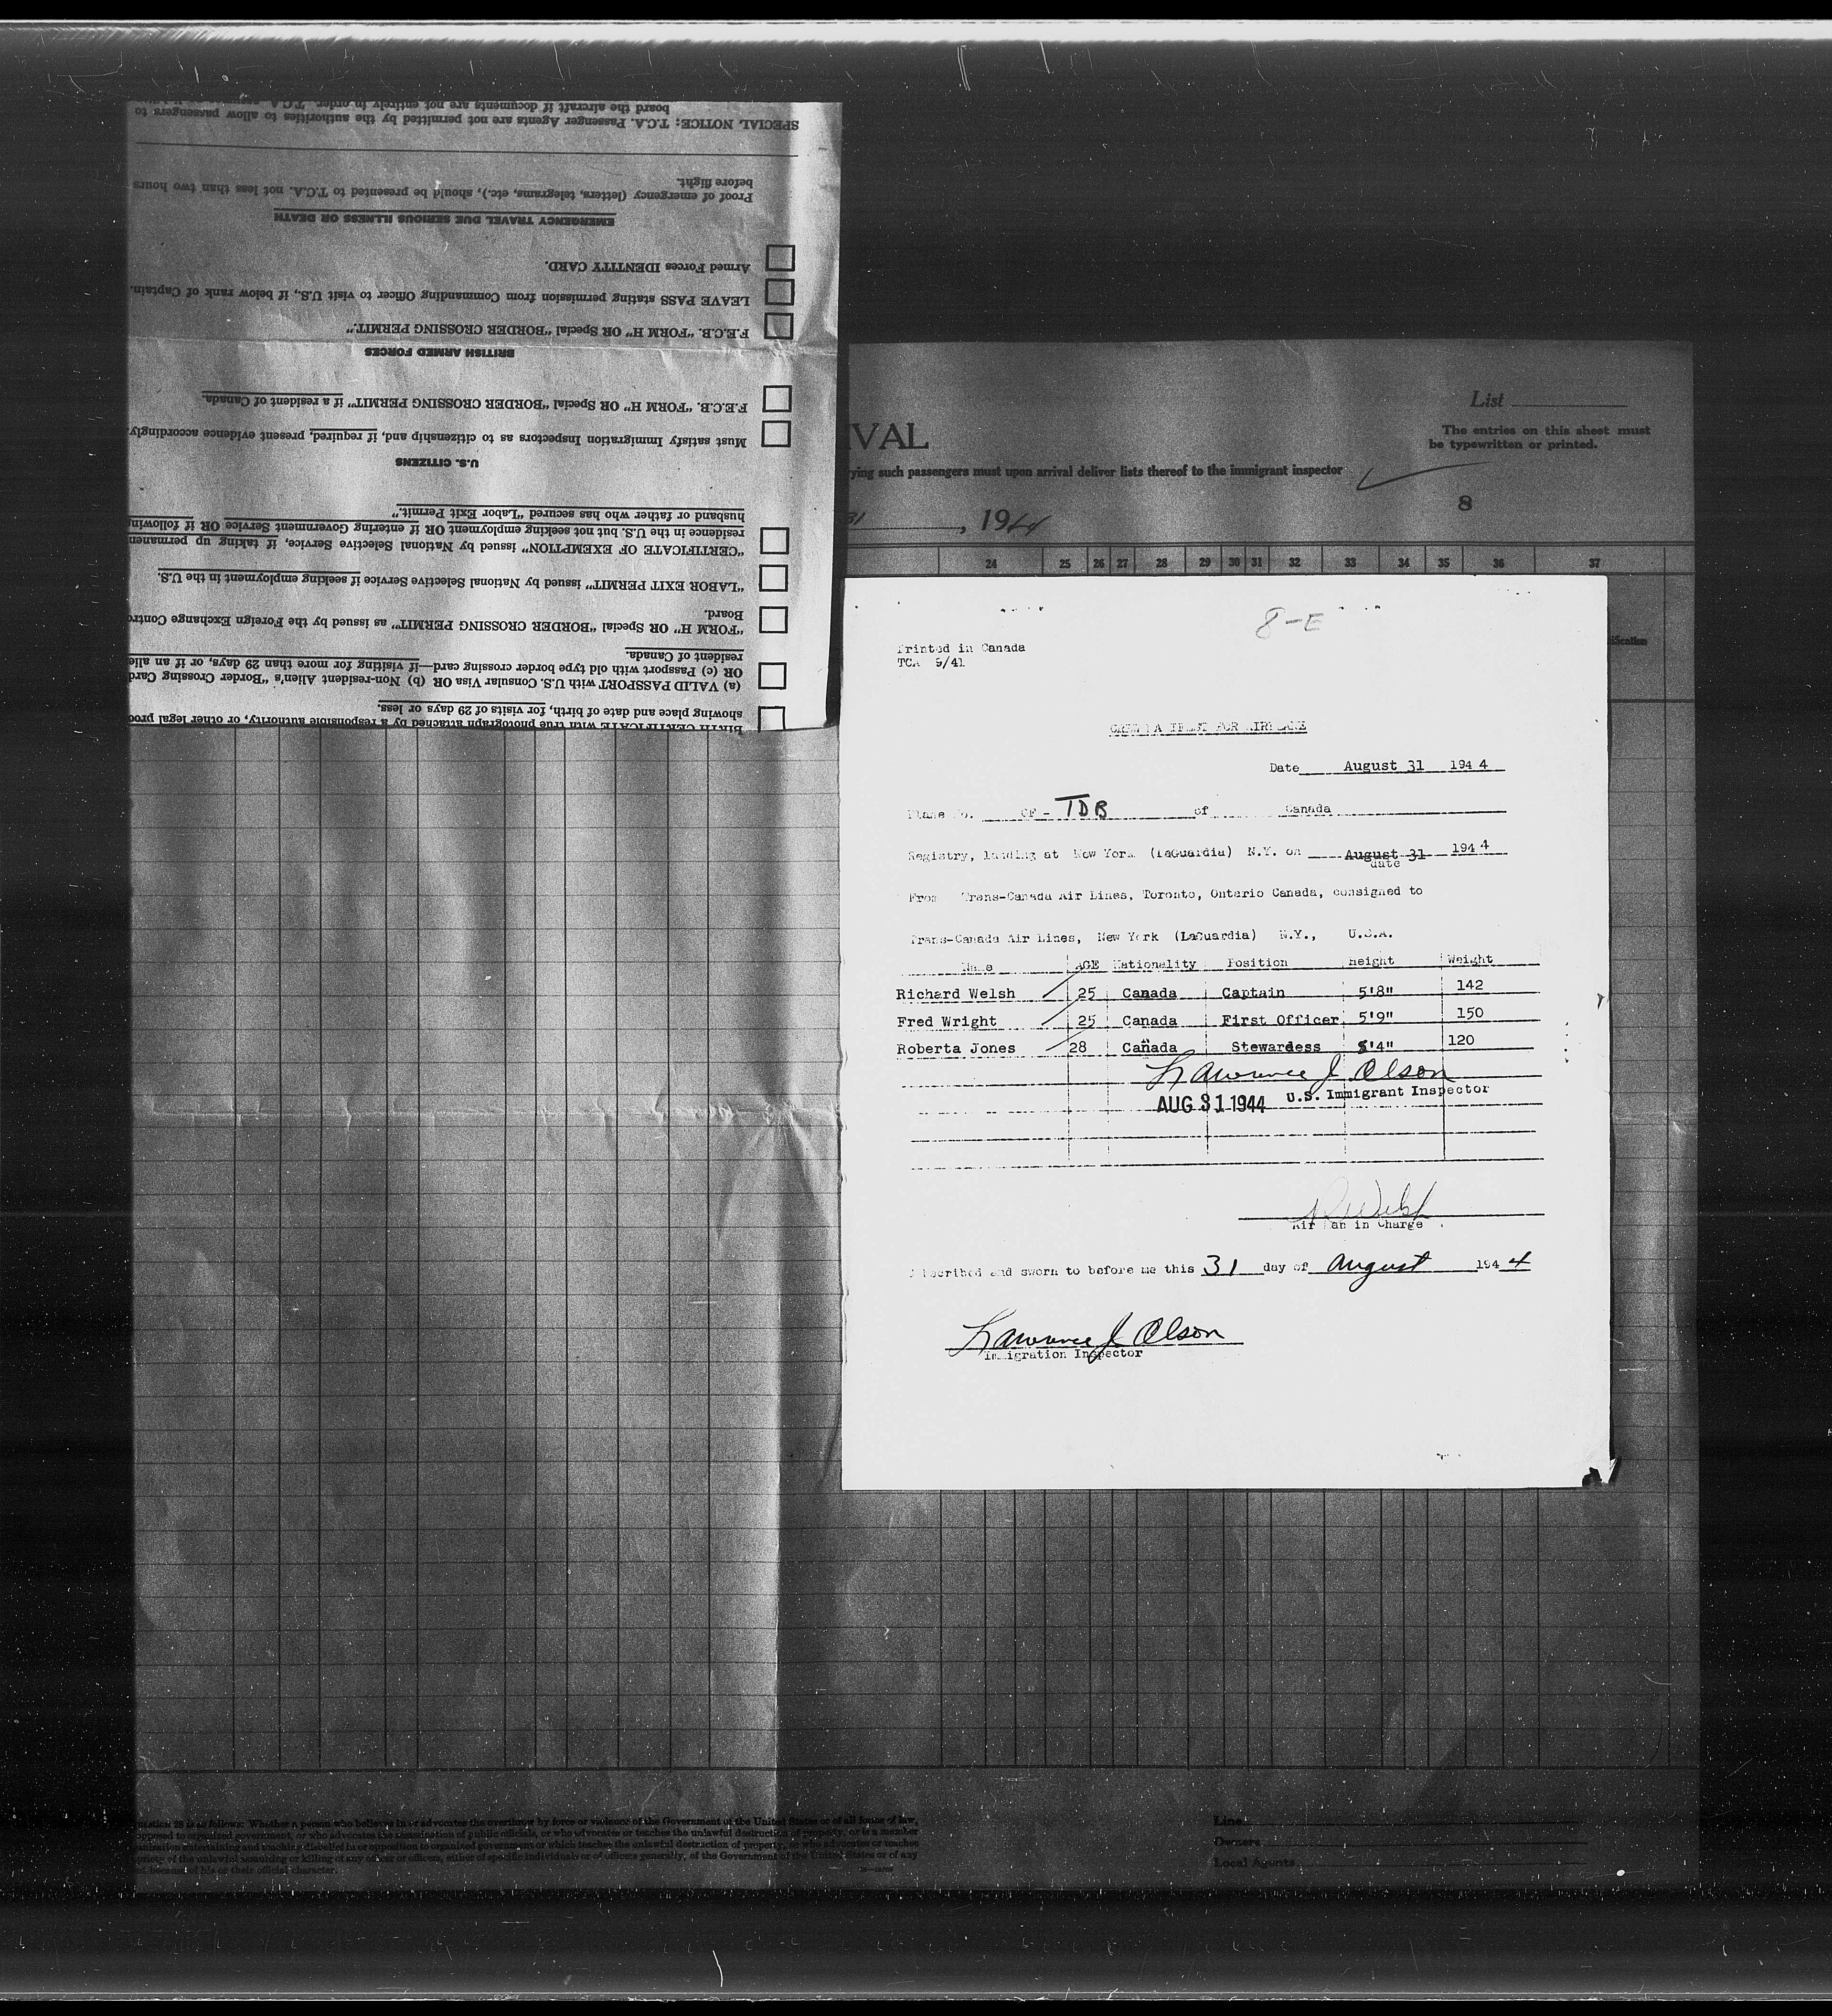 SPECIAL NOTICE: T.C.A. Passenger Agents are not permitted by the authorities to allow passengers to
board the aircraft if documents are not entirely in order. T.C.A.
Proof of emergency (letters, telegrams, etc.), should be presented to T.C.A. not less than two hours
before flight.
EMERGENCY TRAVEL DUE SERIOUS ILLNESS OR DEATH
Armed Forces IDENTITY CARD.
LEAVE PASS stating permission from Commanding Officer to visit U.S., if below rank of Captain.
F.E.C.B. "FORM H" OR Special "BORDER CROSSING PERMIT."
BRITISH ARMED FORCES
F.E.C.B. "FORM H" OR Special "BORDER CROSSING PERMIT" if a resident of Canada.
Must satisfy Immigration Inspectors as to citizenship and, if required, present evidence accordingly.
U.S. CITIZENS
"CERTIFICATE OF EXEMPTION" issued by National Selective Service, if taking up permanen
residence in the U.S. but not seeking employment OR if entering Government Service OR if following
husband or father who has secured "Labor Exit Permit."
"LABOR EXIT PERMIT" issued by National Selective Service if seeking employment in the U.S.
"FORM H" OR Special "BORDER CROSSING PERMIT" as issued by the Foreign Exchange Contro
Board.
(a) VALID PASSPORT with U.S. Consular Visa OR (b) Non-resident Alien's "Border Crossing Card
OR (c) Passport with old type border crossing card—if visiting for more than 29 days, or if an alie
resident of Canada.
BIRTH CERTIFICATE with true photograph attached by a responsible authority, or other legal proo
showing place and date of birth, for visits of 29 days or less.
List
IVAL
The entries on this sheet must
be typewritten or printed.
ying such passengers must upon arrival deliver lists thereof to the immigrant inspector
8
31, 1944
24 25 26 27 28 29 30 31 32 33 34 35 36 37
8-E
Printed in Canada
TCA 9/41
CREW MANIFEST FOR AIRPLANE
Date August 31 1944
Plane No. CF - TDB of Canada
Registry, landing at New York (LaGuardia) N.Y. on August 31 1944
date
From Trans-Canada Air Lines, Toronto, Ontario Canada, consigned to
Trans-Canada Air Lines, New York (LaGuardia) N.Y., U.S.A.
Name AGE Nationality Position Height Weight
Richard Welsh 25 Canada Captain 5'8" 142
Fred Wright 25 Canada First Officer 5'9" 150
Roberta Jones 28 Canada Stewardess 5'4" 120
Lawrence J. Olson
AUG 31 1944 U.S. Immigrant Inspector
R Welsh
Air Man in Charge
Subscribed and sworn to before me this 31 day of August 1944
Lawrence J. Olson
Immigration Inspector
uestion 28 is as follows: Whether a person who believes in or advocates the overthrow by force or violence of the Government of the United States or of all forms of law,
opposed to organized government, or who advocates the assassination of public officials, or who advocates or teaches the unlawful destruction of property, or is a member
ganization entertaining and teaching disbelief in or opposition to organized government or which teaches the unlawful destruction of property, or who advocates or teaches
propriety of the unlawful assaulting or killing of any officer or officers, either of specific individuals or of officers generally, of the Government of the United States or of any
because of his or their official character.
Line
Owners
Local Agents